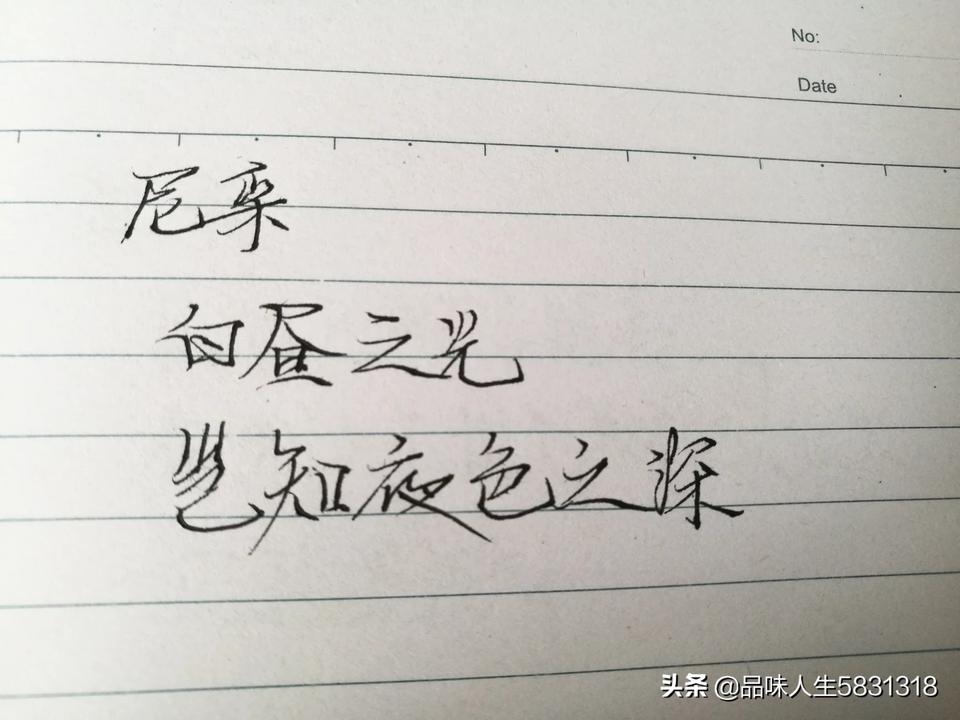 No:
Date
尼采
白昼之光
岂知夜色之深
头条 @品味人生5831318